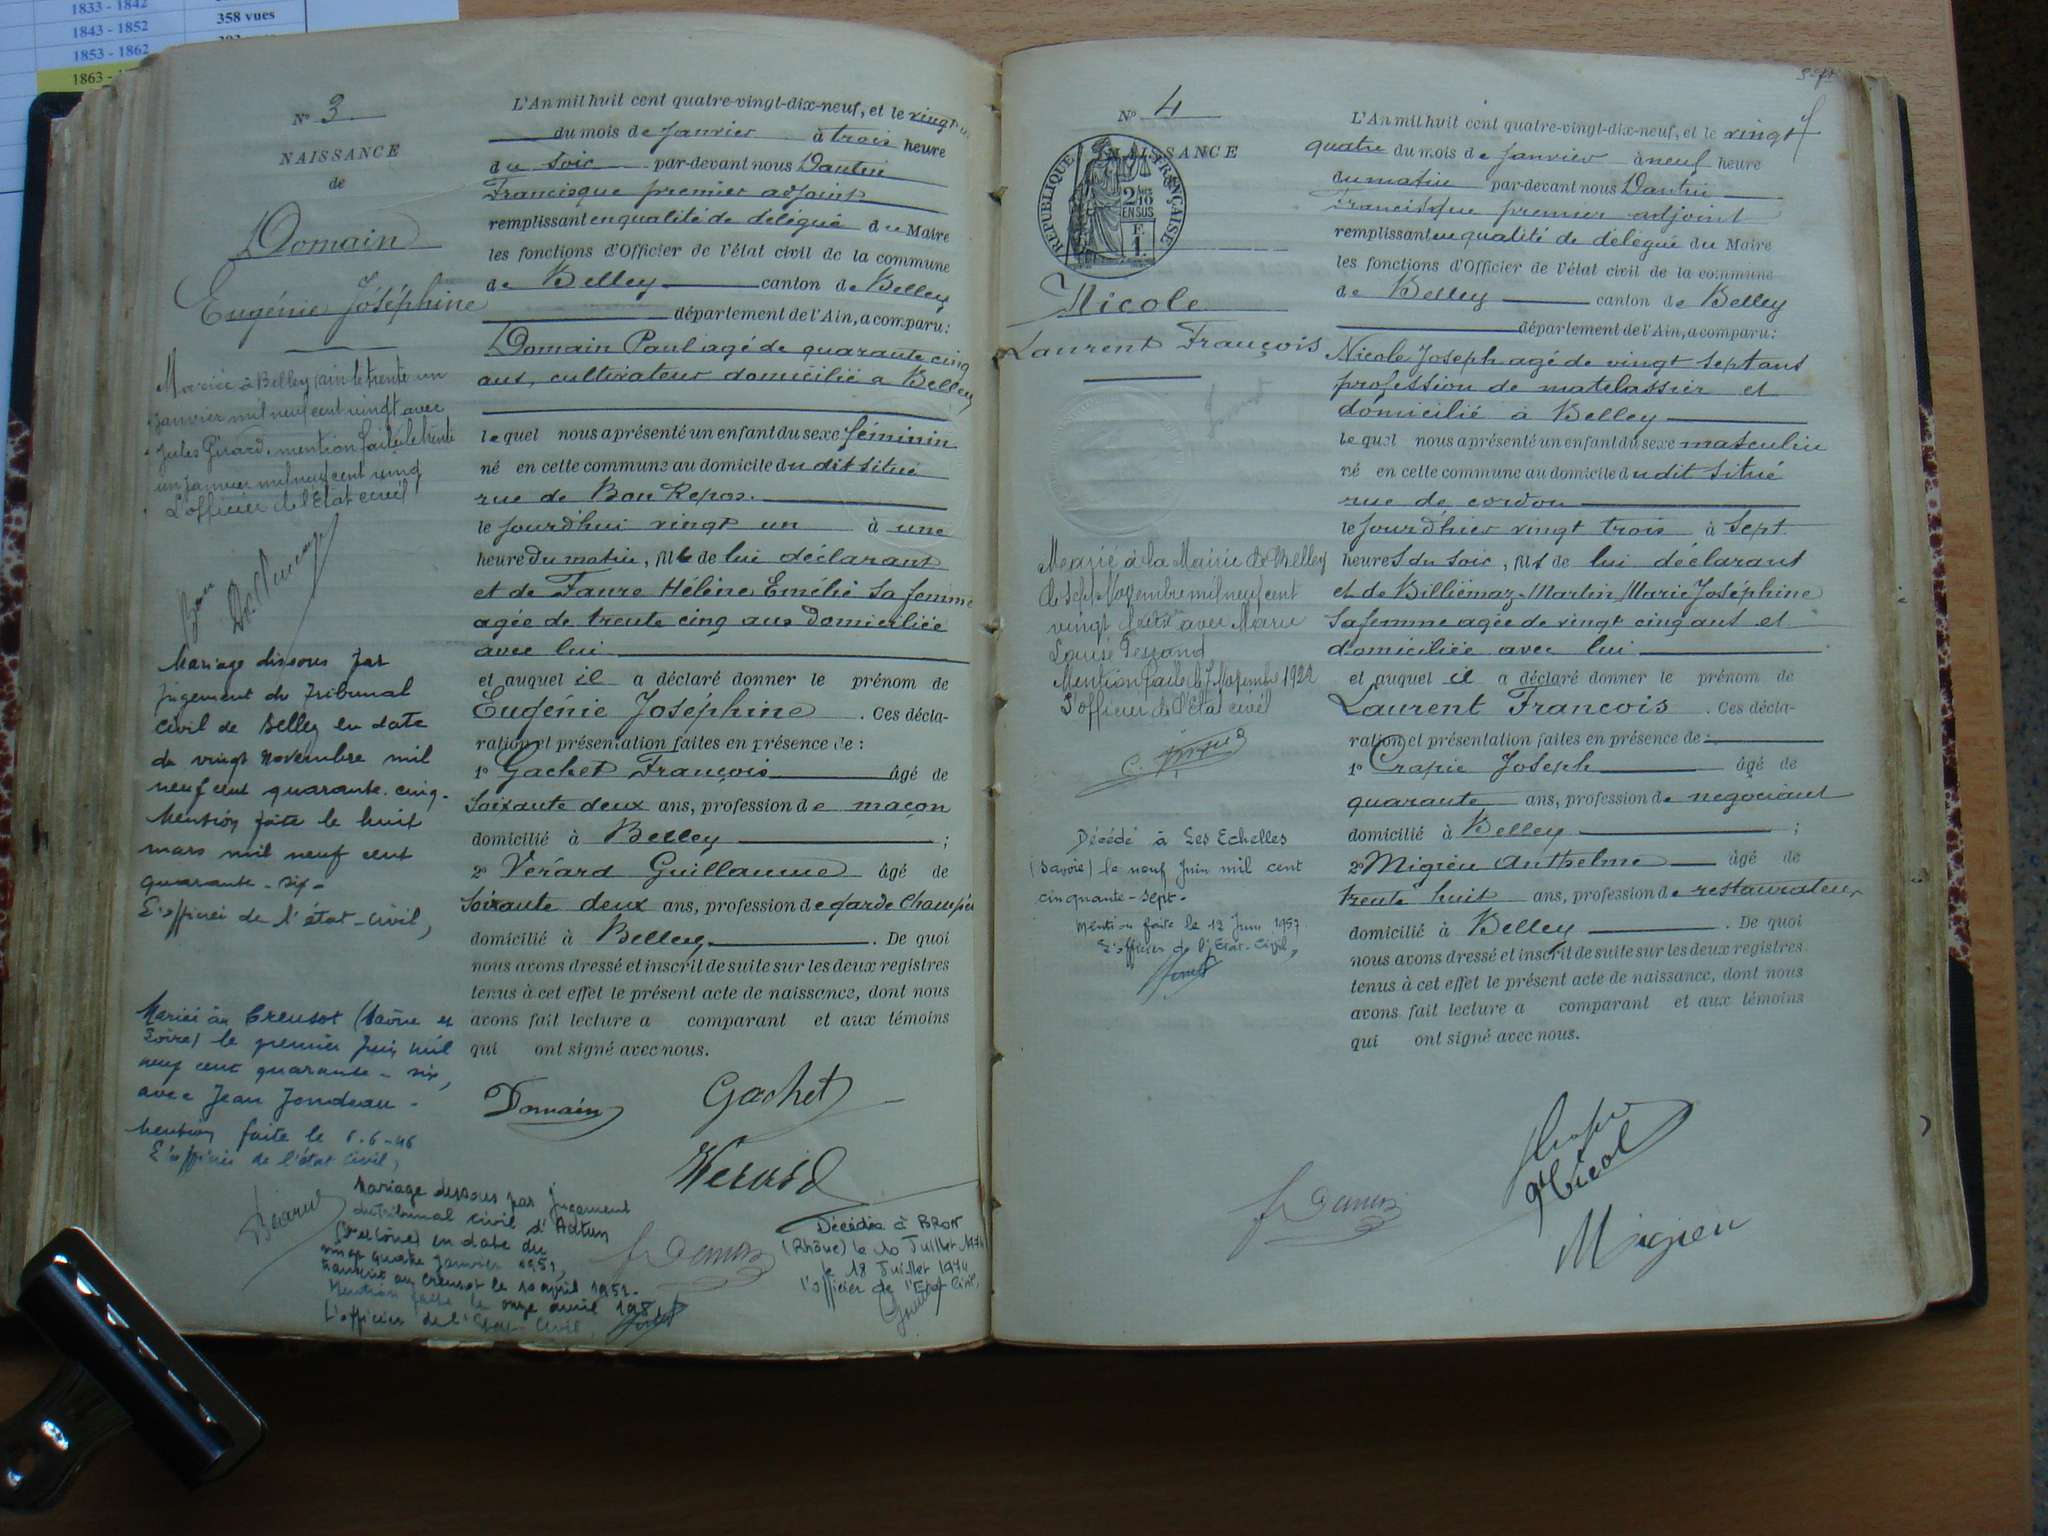 1833 - 1842
358 vues
1843 - 1852
1853 - 1862
1863 -
N° 3
NAISSANCE
de
Domain
Eugénie Joséphine
Mariée à Belley (ain) le trente un
janvier mil neuf cent vingt avec
Jules Girard, mention faite le trente
un janvier mil neuf cent vingt
L'officier de l'Etat civil
Mariage dissous par
jugement du Tribunal
civil de Belley en date
du vingt novembre mil
neuf cent quarante-cinq.
Mention faite le huit
mars mil neuf cent
quarante-six-
L'officier de l'état-civil,
Mariée au Creusot (Saône et
Loire) le premier juin mil
neuf cent quarante-six,
avec Jean Jondeau-
Mention faite le 6-6-46
L'officier de l'état civil,
Mariage dissous par jugement
du Tribunal civil d'Autun
en date du
vingt quatre janvier 1951,
transcrit au Creusot le 10 avril 1951-
Mention faite le onze avril
L'officier de l'Etat-Civil,
L'An mil huit cent quatre-vingt-dix-neuf, et le vingt un
du mois de Janvier à trois heure
du soir par-devant nous Dantin
Francisque premier adjoint
remplissant en qualité de délégué du Maire
les fonctions d'Officier de l'état civil de la commune
de Belley canton de Belley
département de l'Ain, a comparu:
Domain Paul agé de quarante cinq
ans, cultivateur domicilié a Belley
lequel nous a présenté un enfant du sexe féminin
né en cette commune au domicile du dit situé
rue de Bon Repos.
le jourd'hui vingt un à une
heure du matin, fille de lui déclarant
et de Faure Hélène Emélie sa femme
agée de trente cinq ans domiciliée
avec lui
et auquel il a déclaré donner le prénom de
Eugénie Joséphine . Ces décla-
ration et présentation faites en présence de :
1° Gachet François âgé de
soixante deux ans, profession de maçon
domicilié à Belley ;
2° Vérard Guillaume âgé de
soixante deux ans, profession de garde Champêtre
domicilié à Belley . De quoi
nous avons dressé et inscrit de suite sur les deux registres
tenus à cet effet le présent acte de naissance, dont nous
avons fait lecture a comparant et aux témoins
qui ont signé avec nous.
Domain
Gachet
Verard
Décédée à BRON
(Rhône) le 10 Juillet 1974
le 18 Juillet 1974
l'officier de l'Etat-Civil,
N° 4
NAISSANCE
REPUBLIQUE FRANÇAISE
2/10
EN SUS
F.
1.
Nicole
Laurent François
Marié à la Mairie de Belley
le sept Novembre mil neuf cent
vingt deux avec Marie
Louise
Mention faite le 7 Novembre 1922
L'officier de l'Etat civil
Décédé à Les Echelles
(Savoie) le neuf Juin mil cent
cinquante-sept-
Mention faite le 12 Juin 1957.
L'officier de l'Etat-Civil,
L'An mil huit cent quatre-vingt-dix-neuf, et le vingt
quatre du mois de Janvier à neuf heure
du matin par-devant nous Dantin
Francisque premier adjoint
remplissant en qualité de délégué du Maire
les fonctions d'Officier de l'état civil de la commune
de Belley canton de Belley
département de l'Ain, a comparu:
Nicole Joseph agé de vingt sept ans
profession de matelassier et
domicilié à Belley
lequel nous a présenté un enfant du sexe masculin
né en cette commune au domicile du dit situé
rue de cordon
le jourd'hier vingt trois à sept
heures du soir, fils de lui déclarant
et de Billiémaz-Martin Marie Joséphine
sa femme agée de vingt cinq ans et
domiciliée avec lui
et auquel il a déclaré donner le prénom de
Laurent Francois . Ces décla-
ration et présentation faites en présence de :
1° Crapie Joseph âgé de
quarante ans, profession de negociant
domicilié à Belley ;
2° Migieu Anthelme âgé de
trente huit ans, profession de restaurateur
domicilié à Belley . De quoi
nous avons dressé et inscrit de suite sur les deux registres
tenus à cet effet le présent acte de naissance, dont nous
avons fait lecture a comparant et aux témoins
qui ont signé avec nous.
Nicol
Migieu